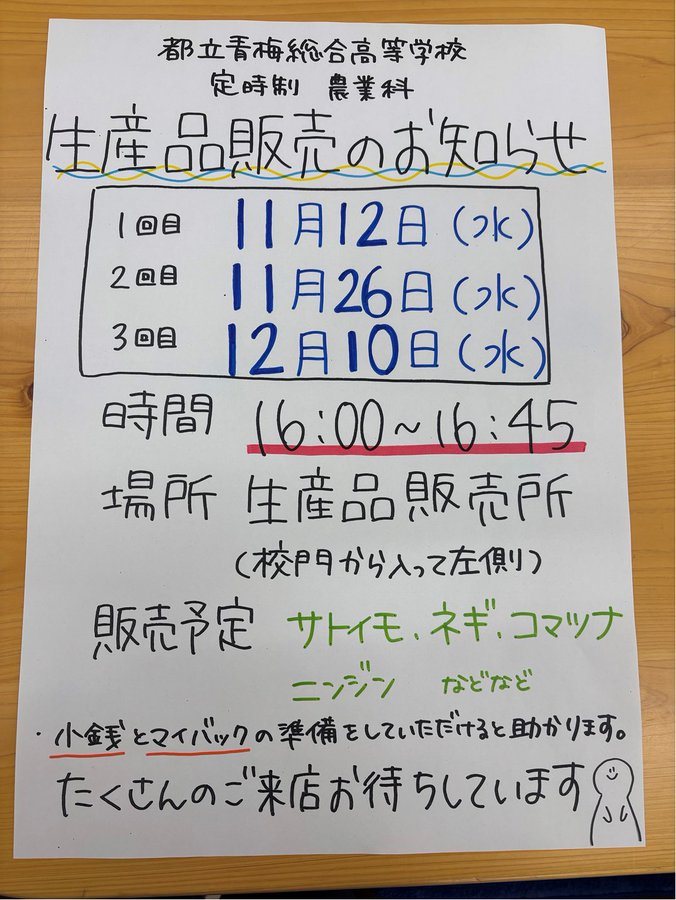 都立青梅総合高等学校
定時制 農業科
生産品販売のお知らせ
1回目 11月12日(水)
2回目 11月26日(水)
3回目 12月10日(水)
時間 16:00~16:45
場所 生産品販売所
(校門から入って左側)
販売予定 サトイモ、ネギ、コマツナ
ニンジン などなど
・小銭とマイバックの準備をしていただけると助かります。
たくさんのご来店お待ちしています